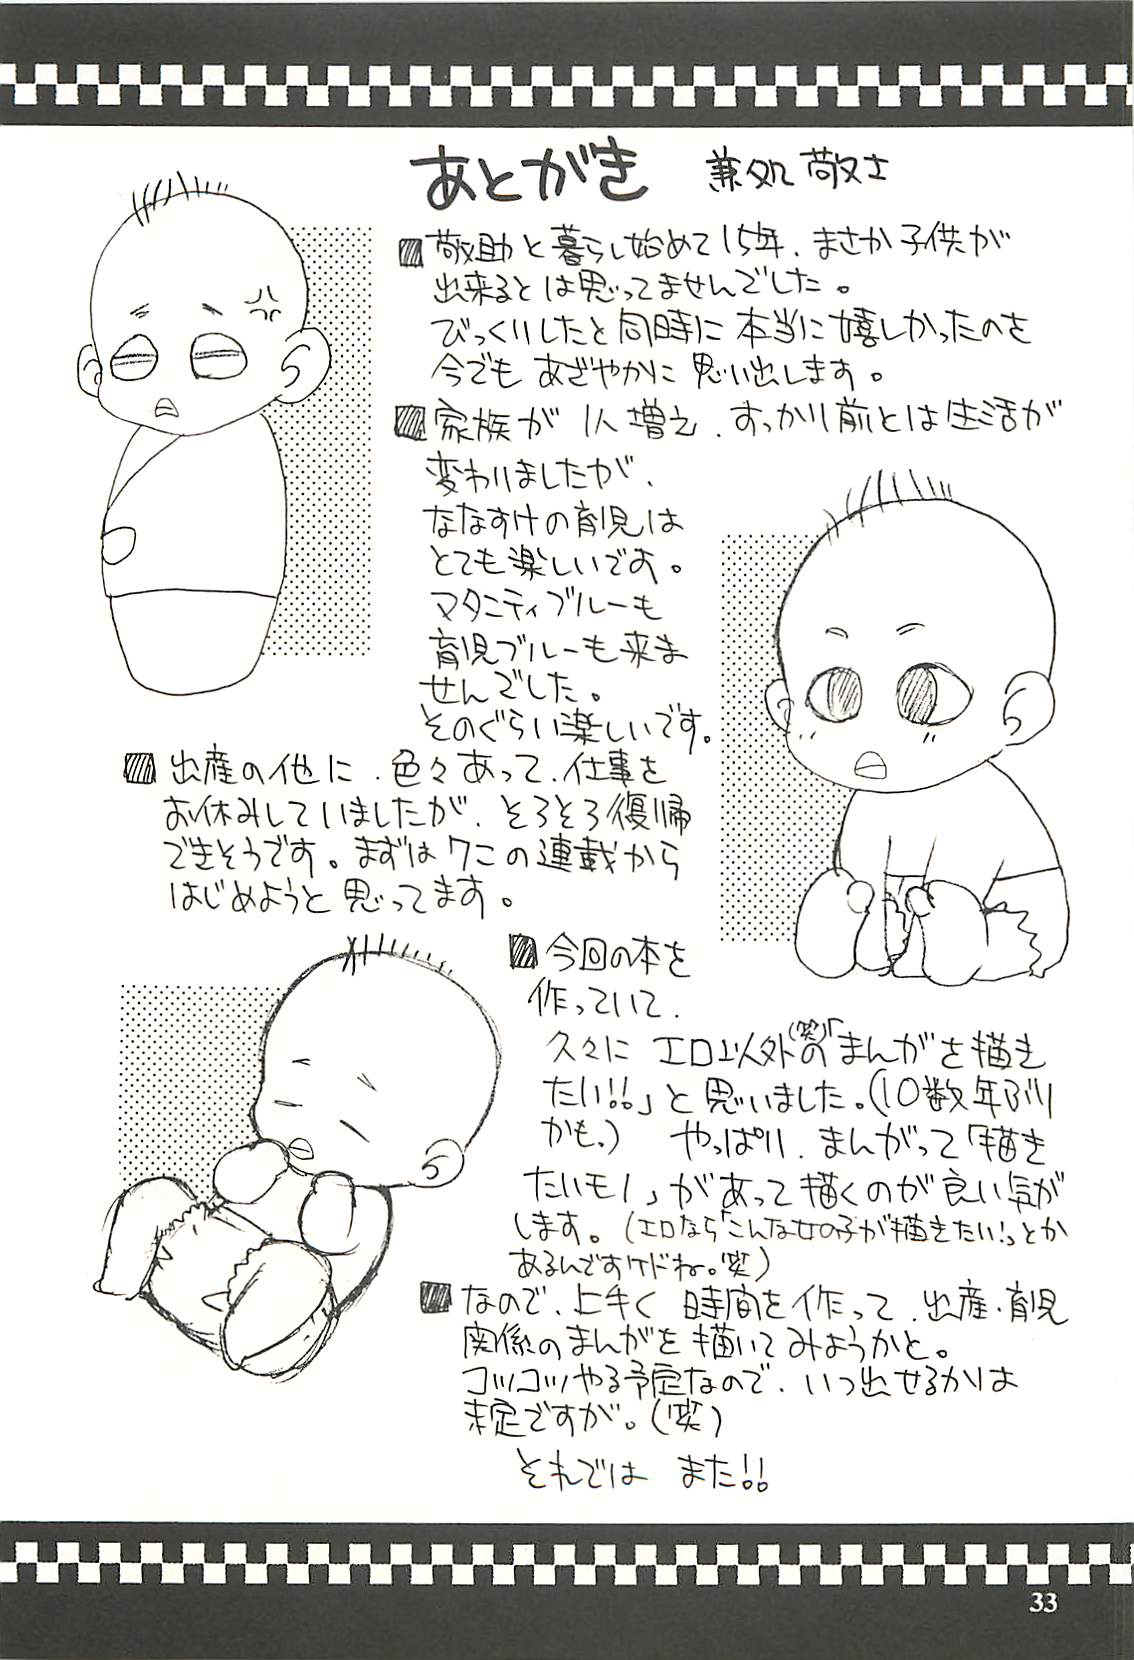 あとがき 兼処敬士
敬助と暮らし始めて15年、まさか子供が
出来るとは思ってませんでした。
びっくりしたと同時に本当に嬉しかったのを
今でもあざやかに思い出します。
家族が1人増え、すっかり前とは生活が
変わりましたが、
ななすけの育児は
とても楽しいです。
マタニティブルーも
育児ブルーも来ま
せんでした。
そのぐらい楽しいです。
出産の他に、色々あって、仕事を
お休みしていましたが、そろそろ復帰
できそうです。まずはワニの連載から
はじめようと思ってます。
今回の本を
作っていて、
久々に エロ以外(笑)の「まんがを描き
たい!!」と思いました。(10数年ぶり
かも。) やっぱり、まんがって「描き
たいモノ」があって描くのが良い気が
します。(エロなら「こんな女の子が描きたい!」とか
あるんですけドね。(笑))
なので、上手く時間を作って、出産・育児
関係のまんがを描いてみようかと。
コツコツやる予定なので、いつ出せるかは
未定ですが。(笑)
それでは また!!
33